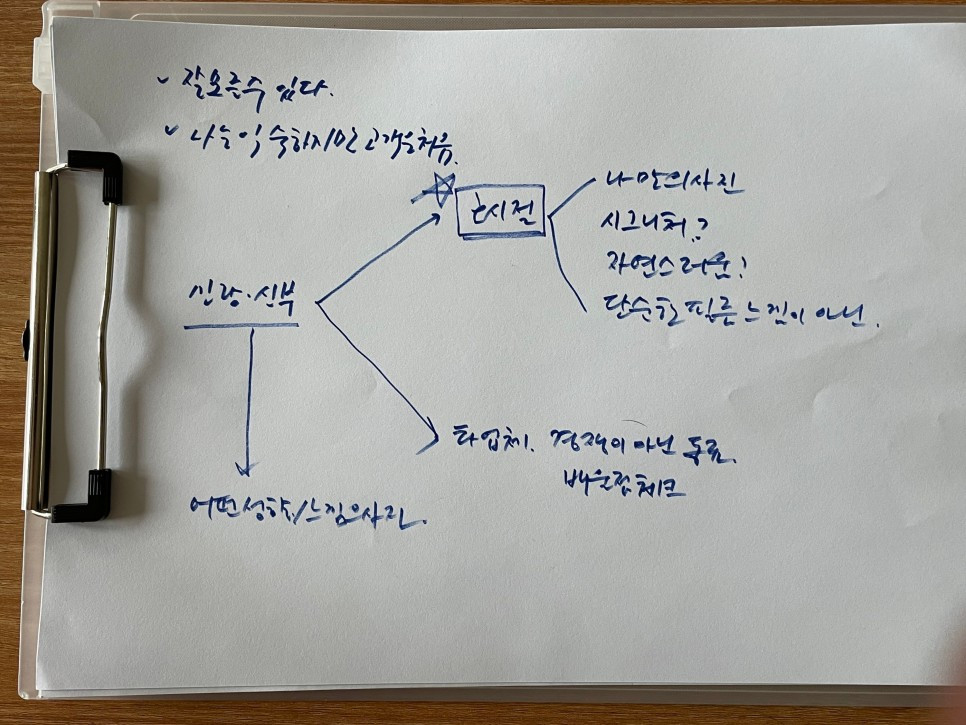 잘 모를 수 있다.
나는 익숙하지만 고객은 처음.
신랑·신부
호시절
나만의 사진
시그니처?
자연스러운!
단순한 필름 느낌이 아닌.
타업체. 경쟁이 아닌 동료.
배울점 체크
어떤 성향/느낌의 사진.